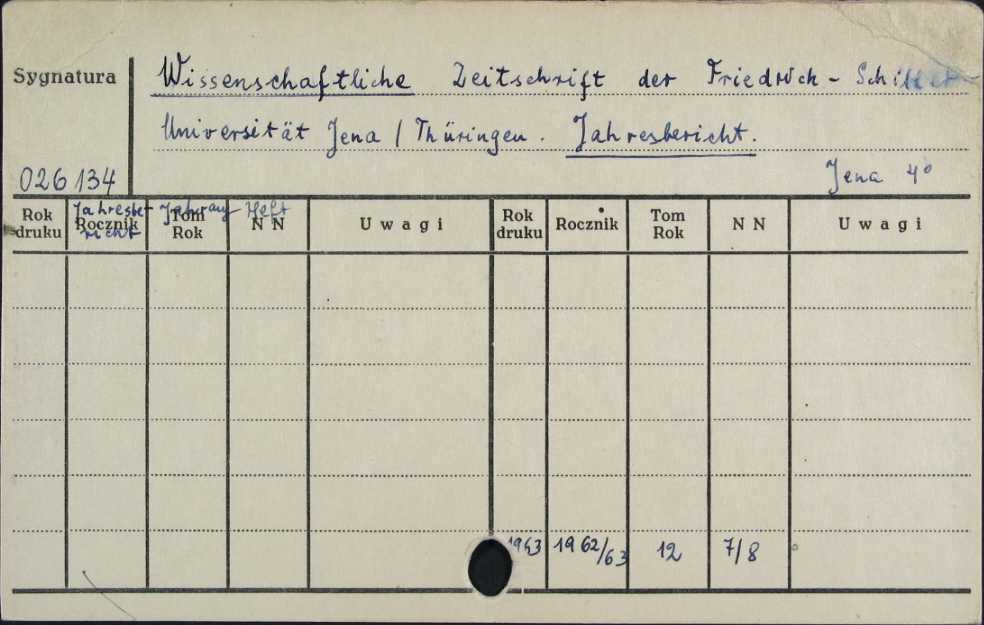 Sygnatura
Wissenschaftliche Zeitschrift der Friedrich-Schiller
Universität Jena / Thüringen. Jahresbericht.
026 134
Jena 4°
Jahresbe- Jahrgang Heft
Rok Rocznik Tom N N Uwagi Rok Rocznik Tom N N Uwagi
druku richt Rok druku Rok
1963 1962/63 12 7/8